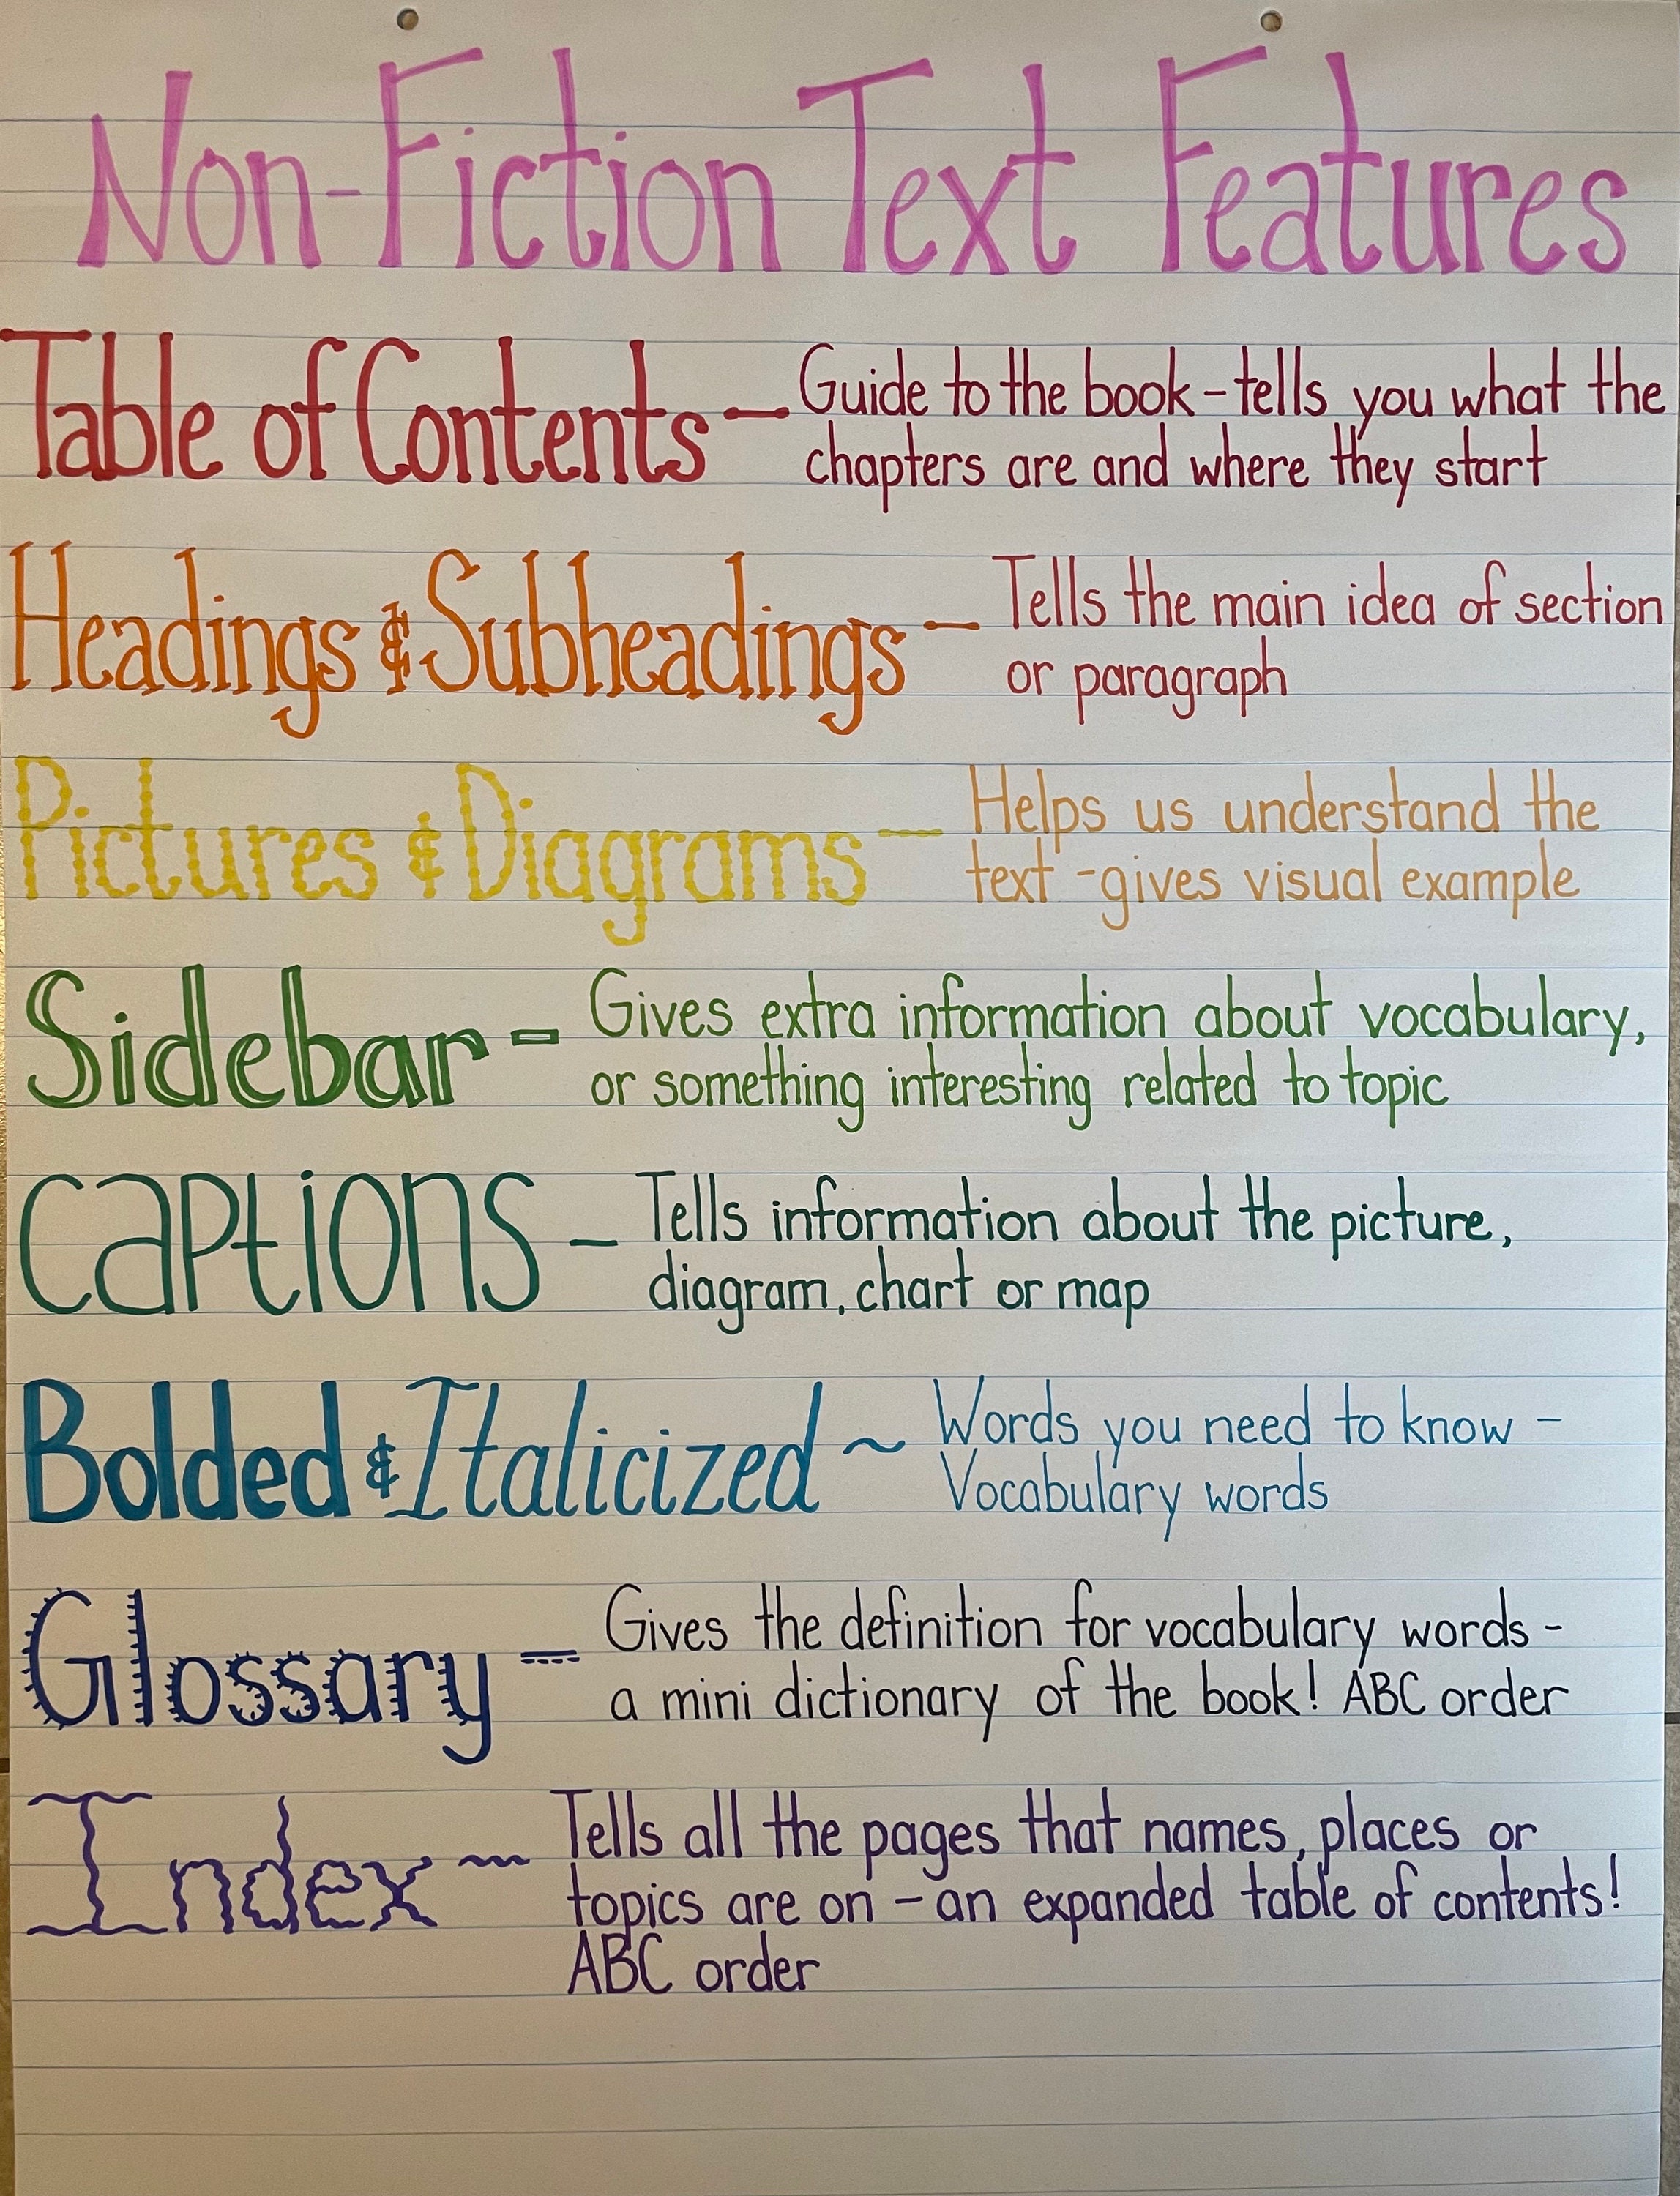 Non-Fiction Text Features
Table of Contents - Guide to the book - tells you what the
chapters are and where they start
Headings & Subheadings - Tells the main idea of section
or paragraph
Pictures & Diagrams - Helps us understand the
text - gives visual example
Sidebar - Gives extra information about vocabulary,
or something interesting related to topic
Captions - Tells information about the picture,
diagram, chart or map
Bolded & Italicized ~ Words you need to know -
Vocabulary words
Glossary - Gives the definition for vocabulary words -
a mini dictionary of the book! ABC order
Index ~ Tells all the pages that names, places or
topics are on - an expanded table of contents!
ABC order